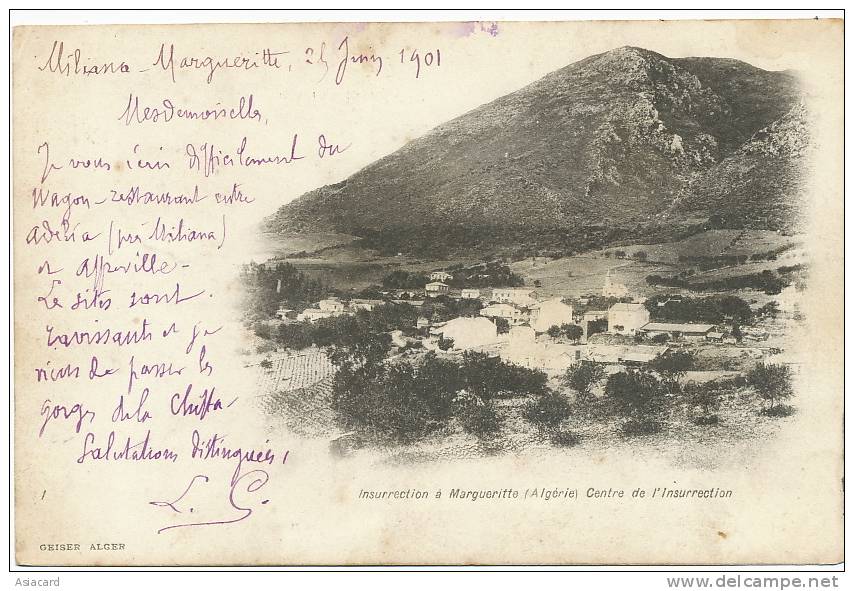 Miliana - Margueritte, 25 Juin 1901
Mesdemoiselles,
Je vous écris difficilement du
Wagon-restaurant entre
Adélia (près Miliana)
et Affreville -
Le sites sont
ravissants et je
viens de passer les
gorges de la Chiffa -
Salutations distinguées,
L. G.
1
Insurrection à Margueritte (Algérie) Centre de l'Insurrection
GEISER ALGER
Asiacard
http://www.delcampe.net